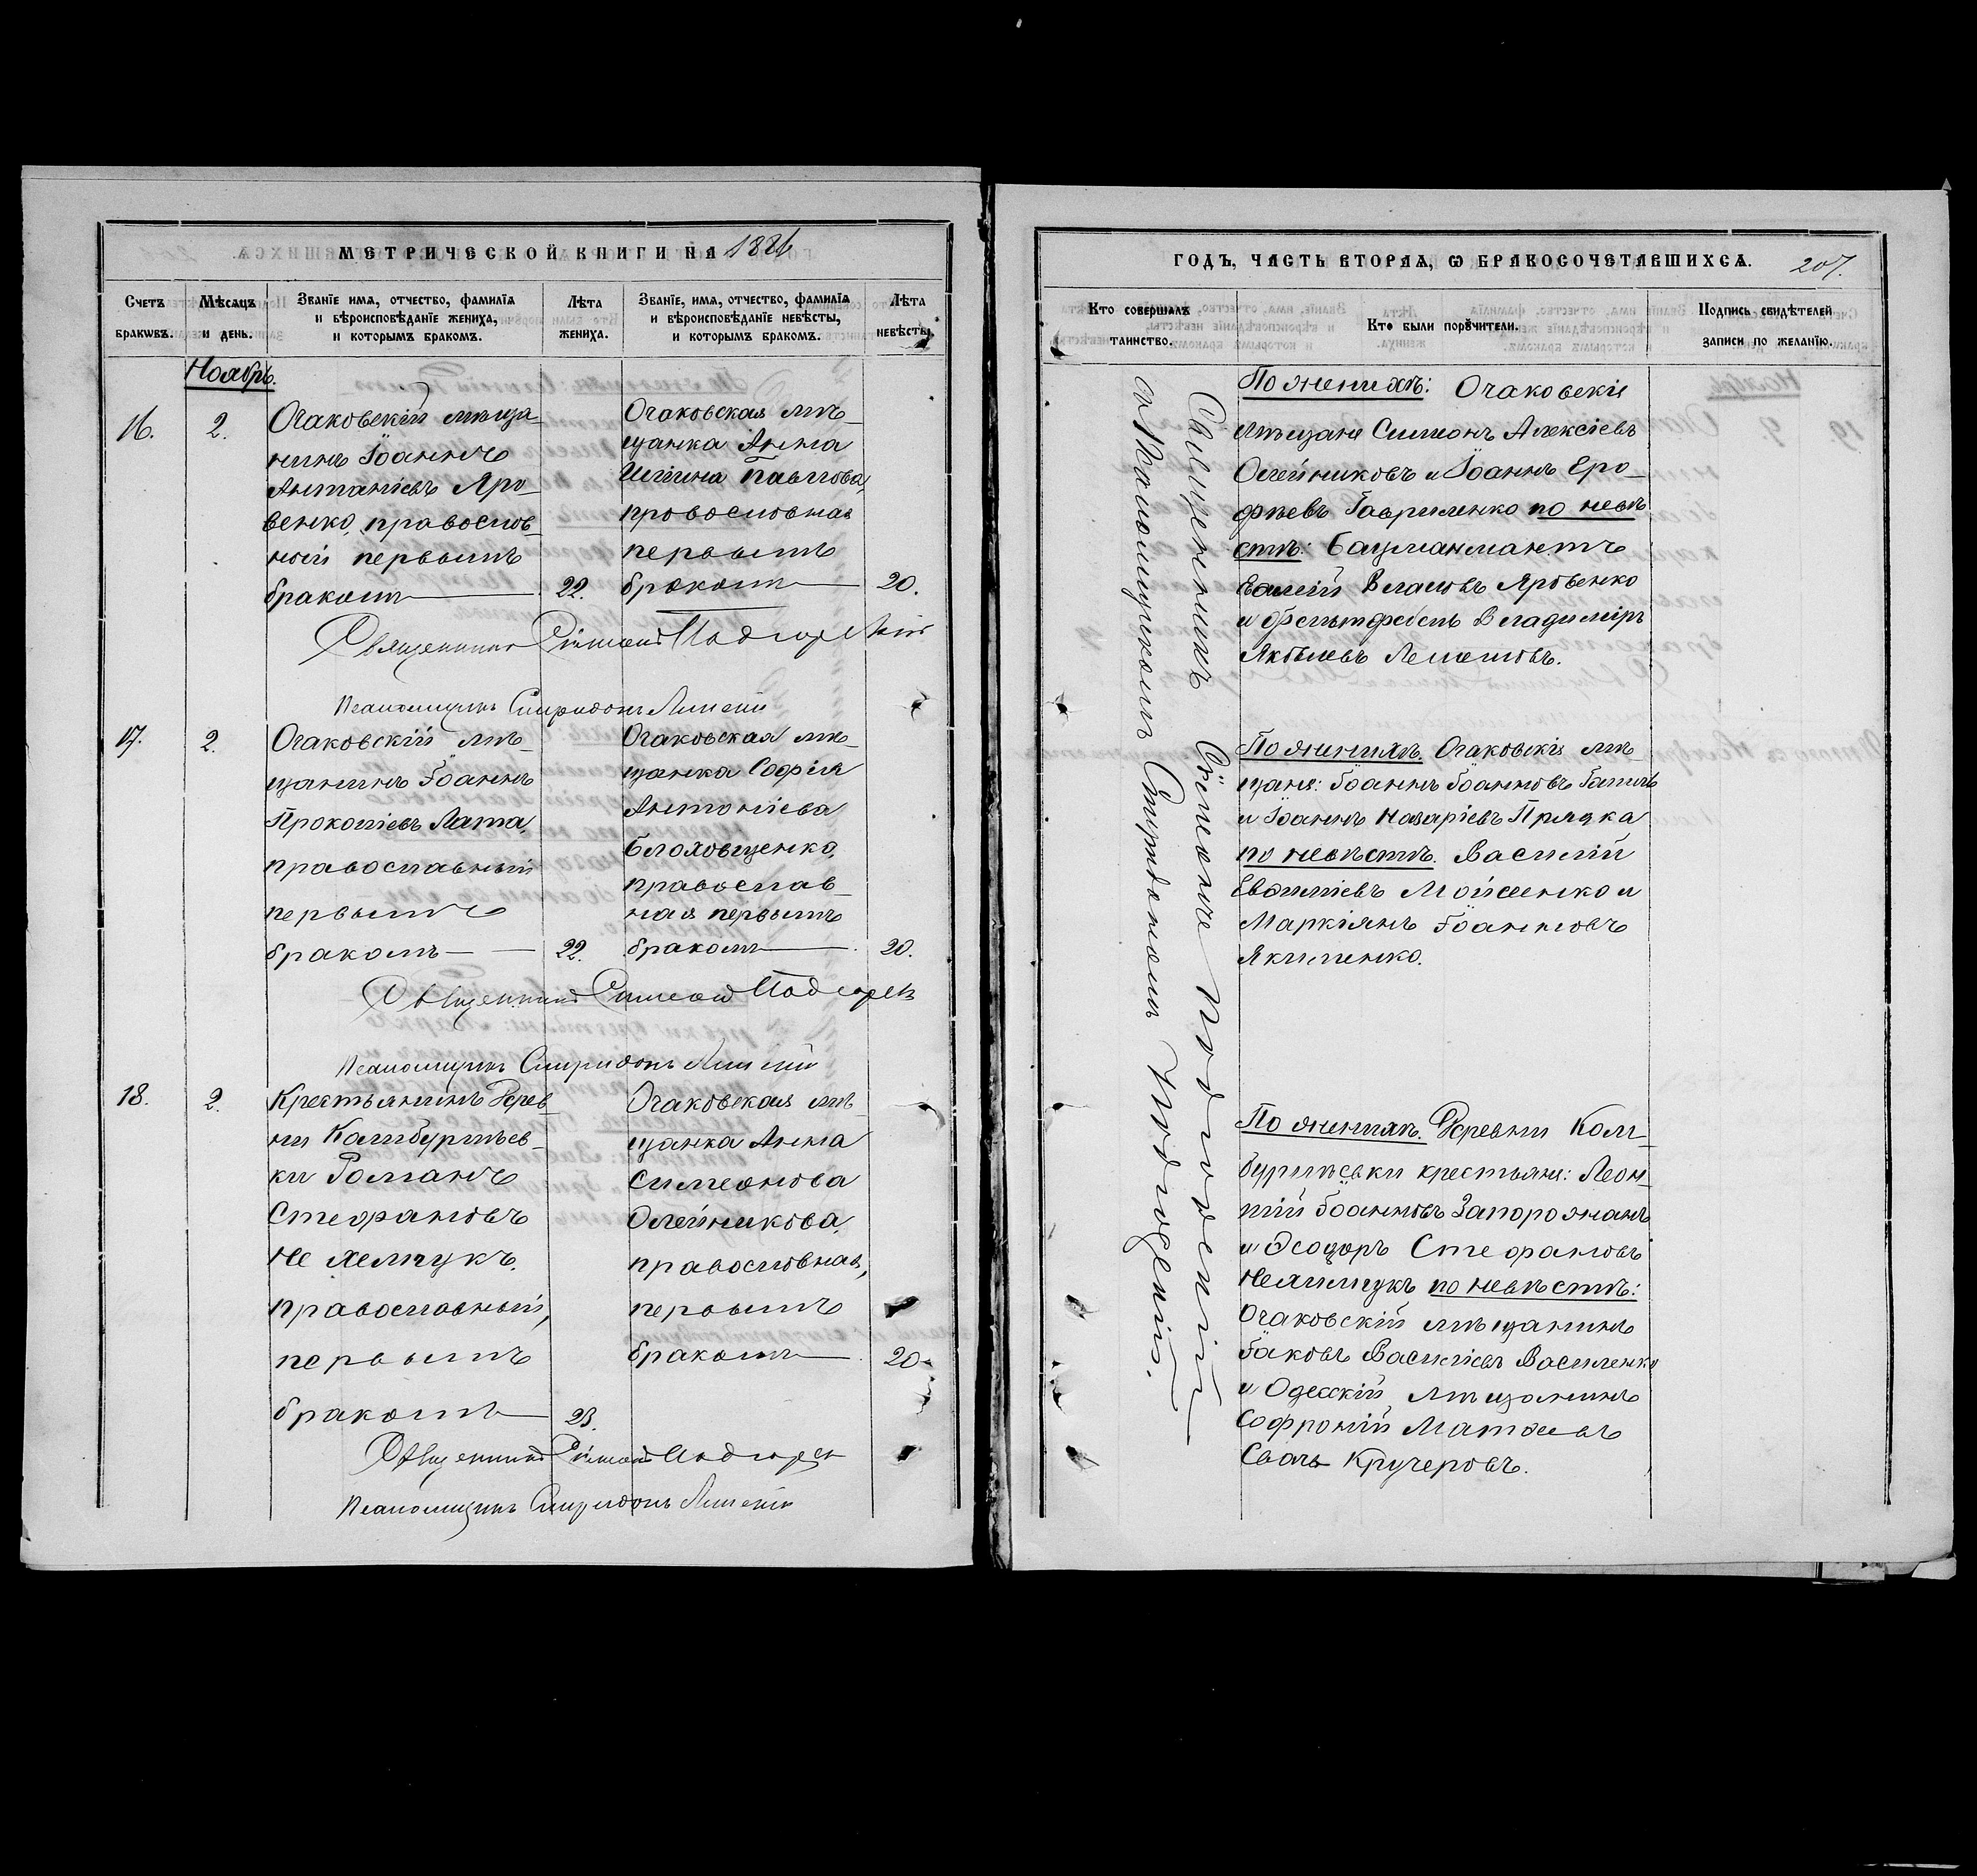 МЕТРИЧЕСКОЙ КНИГИ НА 1886
Счетъ браквъ.
Мѣсяцъ и день.
Званїе имѧ, отчество, фамилїѧ
и вѣроисповѣданїе жениха,
и которымъ бракомъ.
Лѣта жениха.
Званїе, имѧ, отчество, фамилїѧ
и вѣроисповѣданїе невѣсты,
и которымъ бракомъ.
Лѣта невѣсты.
Ноябрь.
16.
2.
Очаковскій мѣща-
нинъ Іоаннъ
Антоніевъ Яро-
венко, православ
ный первымъ
бракомъ
22.
Очаковская мѣ-
щанка Анна
Павлова,
православная
первымъ
бракомъ
20.
Священникъ Симеонъ
Псаломщикъ Спиридонъ
17.
2.
Очаковскій мѣ-
щанинъ Іоаннъ
Прокопіевъ Лата,
православный
первымъ
бракомъ
22.
Очаковская мѣ-
щанка Софія
Антоніева
Блоховщенко,
православ-
ная первымъ
бракомъ
20.
Священникъ Симеонъ
Псаломщикъ Спиридонъ
18.
2.
Крестьянинъ дерев
ни Калибурнъев-
ки Романъ
Стефановъ
православный,
первымъ
бракомъ
23.
Очаковская мѣ-
щанка Анна
Симеонова
Олейникова,
православная,
первымъ
бракомъ
20
Священникъ Симеонъ
Псаломщикъ Спиридонъ
ГОДЪ, ЧАСТЬ ВТОРАѦ, Ѡ БРАКОСОЧЕТАВШИХСѦ.
207.
Кто совершалъ таинство.
Кто были порꙋчители.
Подпись свидѣтелей записи по желанїю.
Священникъ
съ Псаломщикомъ Спиридономъ
По женихѣ: Очаковскіе
мѣщане Симеонъ Алексіевъ
Олейниковъ и Іоаннъ Еро-
фѣевъ Гавриленко по невѣ
стѣ:
Власовъ Яровенко
и Фельтфебель Владиміръ
Яковлевъ Лемешовъ.
По женихѣ. Очаковскіе мѣ
щане: Іоаннъ Іоанновъ
и Іоаннъ Назаріевъ Прядка
по невѣстѣ. Василій
Евфиміевъ Мойсенко и
Маркіянъ Іоанновъ
Якименко.
По женихѣ. Деревни Кали-
крестьяне: Леон-
тій Іоанновъ Запорожанъ
и Ѳеодоръ Стефановъ
по невѣстѣ:
Очаковскій мѣщанинъ
Іаковъ Василіевъ Василенко
и Одесскій мѣщанинъ
Софроній Матѳеевъ
Кручеровъ.